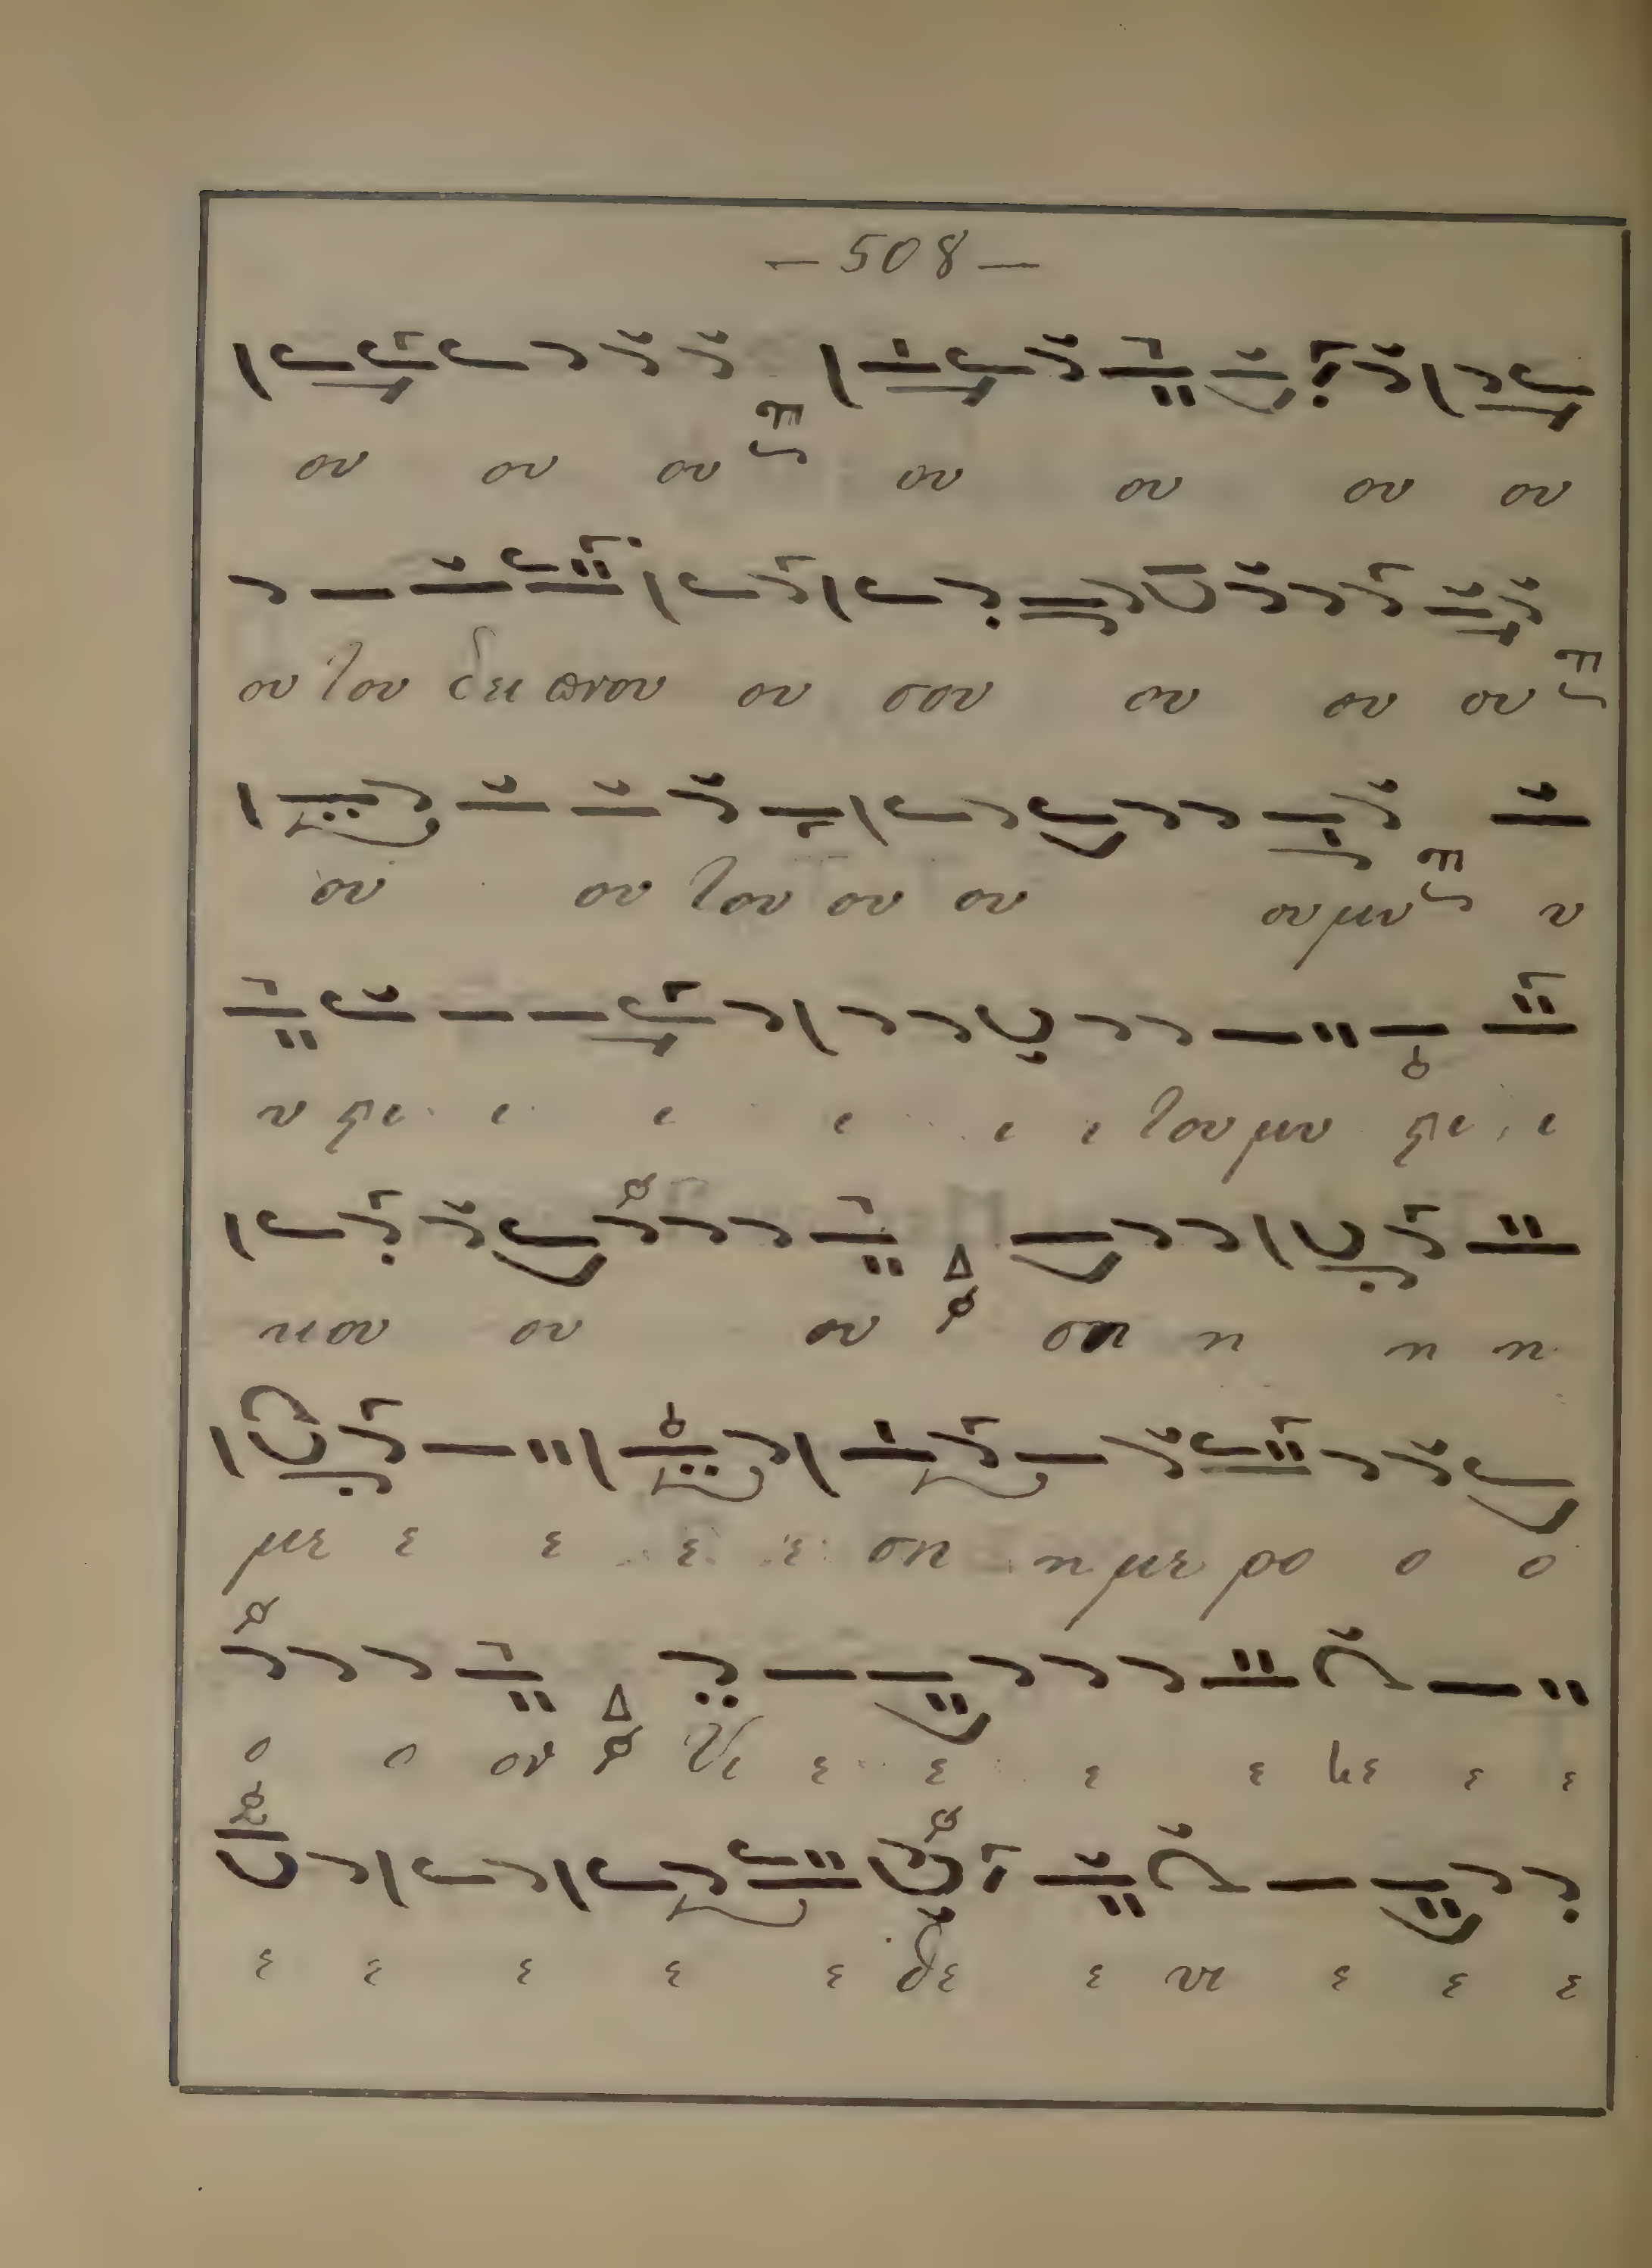 — 508 —
ου ου ου ου ου ου ου
ου του δει πνου ου σου ου ου ου
ου ου του ου ου ου μυ υ
υ στι ι ι ι ι ι του μυ στι ι
κου ου ου ση η η η
με ε ε ε ε ση η με ρο ο ο
ο ο ον Υι ε ε ε ε ε ε
ε ε ε ε ε Θε ε ε ε ε